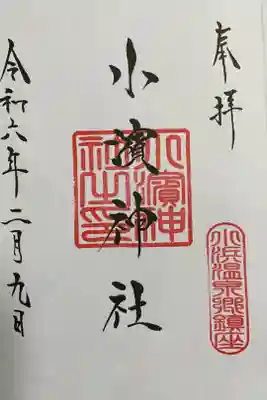 奉拝
小浜温泉郷鎮座
小濱神社
小濱神社之印
令和六年二月九日